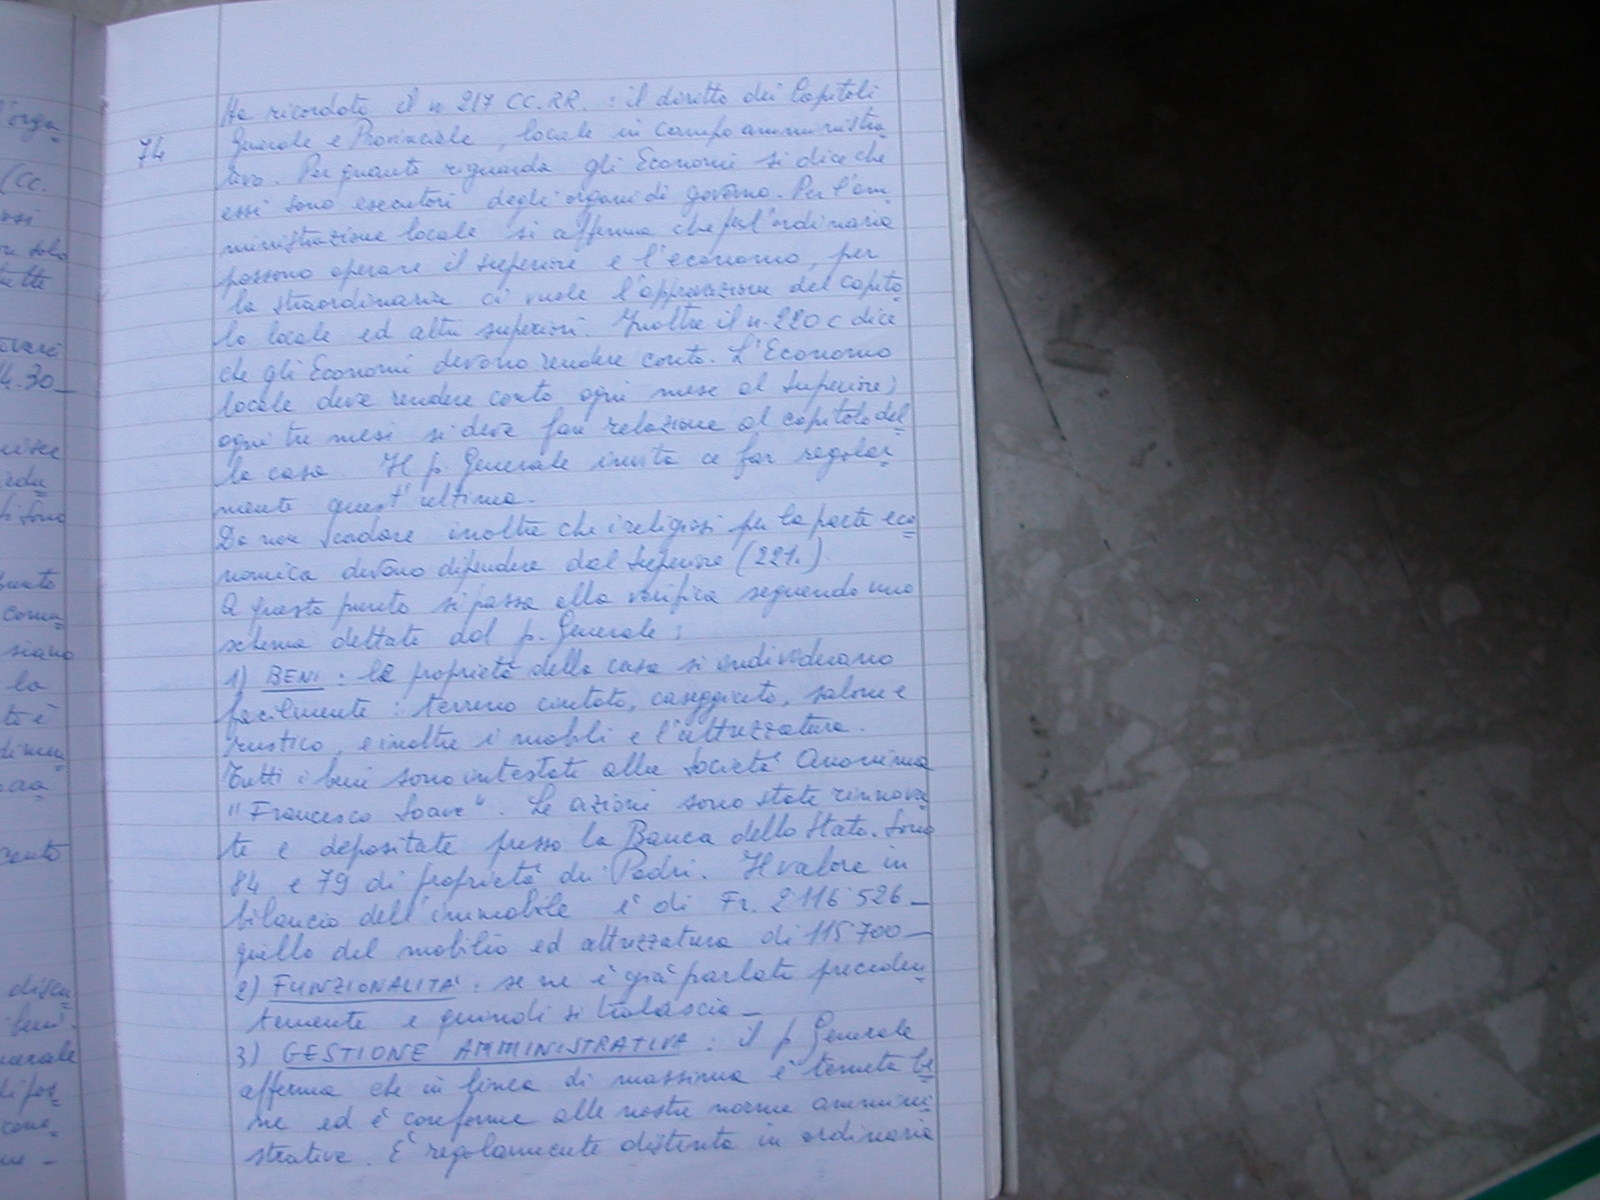 l'orga=
(CC.
on solo
tutte
4.30_
di sono
coma=
siano
la
to è
discu=
beni.
nerale
74
Ha ricordato il n 217 CC.RR. : il diritto dei Capitoli
Generale e Provinciale, locale in campo amministra=
tivo. Per quanto riguarda gli Economi si dice che
essi sono esecutori degli organi di governo. Per l'am
ministrazione locale si afferma che per l'ordinaria
possono operare il superiore e l'economo, per
la straordinaria ci vuole l'approvazione del capito=
lo locale ed altri superiori. Inoltre il n. 220 c dice
che gli Economi devono rendere conto. L'Economo
locale deve rendere conto ogni mese al Superiore;
ogni tre mesi si deve fare relazione al capitolo del=
la casa. Il p. Generale invita a far regolar=
mente quest'ultima.
Da non scordare inoltre che i religiosi per la parte eco=
nomica devono dipendere dal Superiore (221.)
A questo punto si passa alla verifica seguendo uno
schema dettato dal p. Generale :
1) BENI : la proprietà della casa si individuano
facilmente : terreno cintato, caseggiato, salone e
rustico, e inoltre i mobili e l'attrezzatura.
Tutti i beni sono intestati alla Società Anonima
"Francesco Soave". Le azioni sono state rinnova=
te e depositate presso la Banca dello Stato. Sono
84 e 79 di proprietà dei Padri. Il valore in
bilancio dell'immobile è di Fr. 2'116'526_
quello del mobilio ed attrezzatura di 115'700_
2) FUNZIONALITA' : se ne è già parlato preceden=
temente e quindi si tralascia_
3) GESTIONE AMMINISTRATIVA : il p. Generale
afferma che in linea di massima è tenuta be=
ne ed è conforme alle nostre norme ammini=
strative. È regolarmente distinta in ordinaria